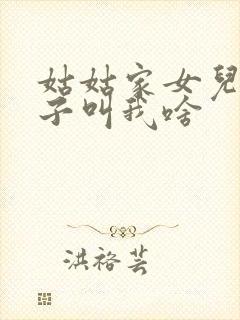 姑姑家女兒
子叫我啥
洪裕芸